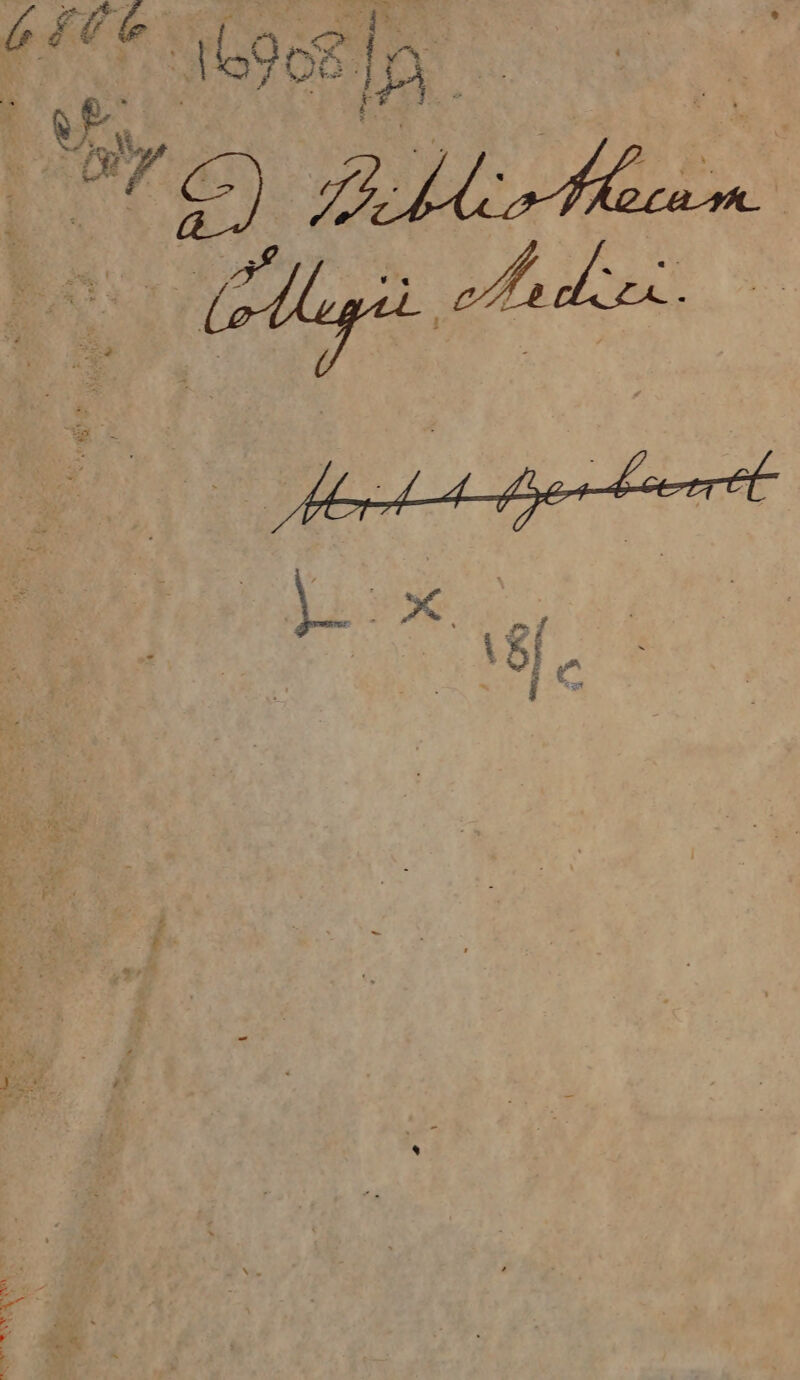 6806
16908/A
Bibliothecam
Collegii Medici.
Mit 1 Beiband
L. x.
18/c